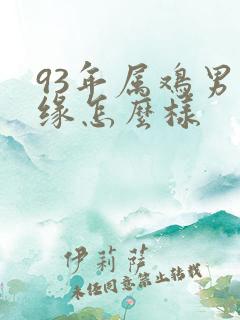 93年属鸡男
缘怎麼様
伊莉萨
未经同意禁止转载